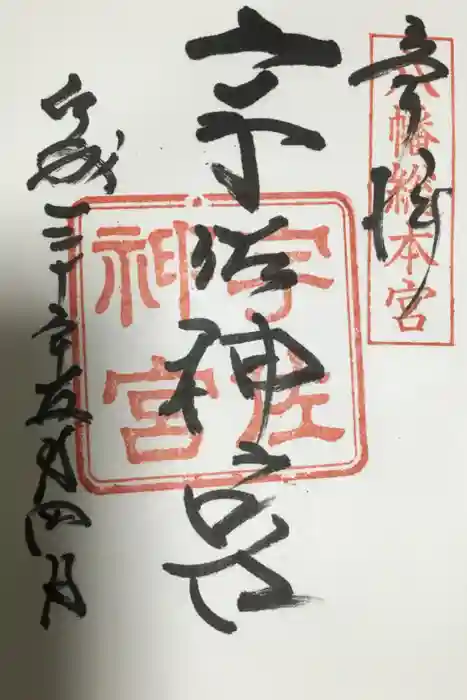 奉拝
八幡総本宮
宇佐神宮
宇佐
神宮
平成三十年五月四日